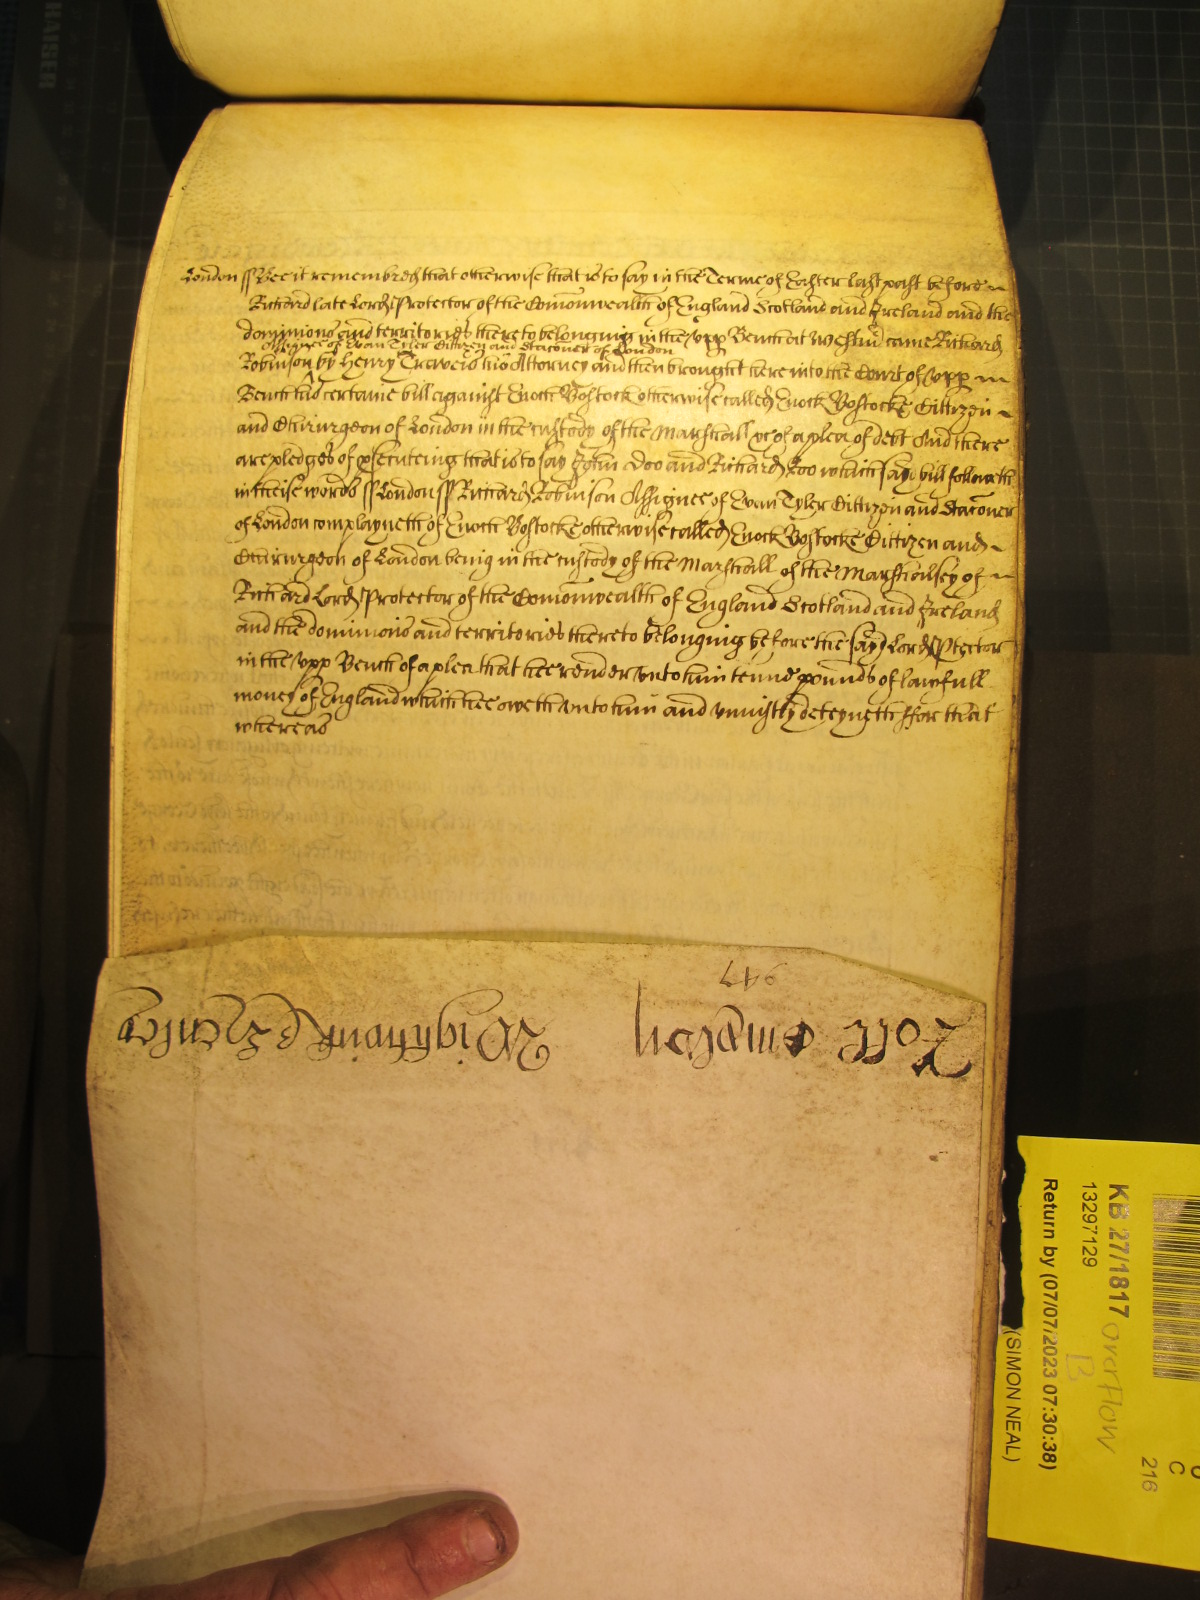 London ss Bee it remembred that otherwise that is to say in the Terme of Easter last past before
Richard late Lord Protector of the Comonwealth of England Scotland and Ireland and the
dominions and territories thereto belonging in the upp Bench at Westm came Richard
Assignee of Evan Tyler Cittizen and Staconer of London
Robinson by Henry Travers his Attorney and then brought here into the Court of upp
Bench his certaine bill against Enoch Bostock otherwise called Enock Bostocke Cittizen
and Chirurgeon of London in the custody of the Marshall &c of a plea of debt And there
are pledges of psecuteing that is to say John Doo and Richard Roo which said bill followeth
in theise words ss London ss Richard Robinson Assignee of Evan Tyler Cittizen and Staconer
of London complayneth of Enoch Bostocke otherwise called Enock Bostocke Cittizen and
Chirurgeon of London being in the custody of the Marshall of the Marshalsey of
Richard Lord Protector of the Comonwealth of England Scotland and Ireland
and the dominions and territories thereto belonging before the said Lord Ptector
in the upp Bench of a plea that hee render unto him tenne pounds of lawfull
money of England which hee oweth unto him and uniustly deteyneth ffor that
whereas
947
Wightwick & Henley
KB 27/1817
overflow
B
13297129
Return by (07/07/2023 07:30:38)
(SIMON NEAL)
C
216